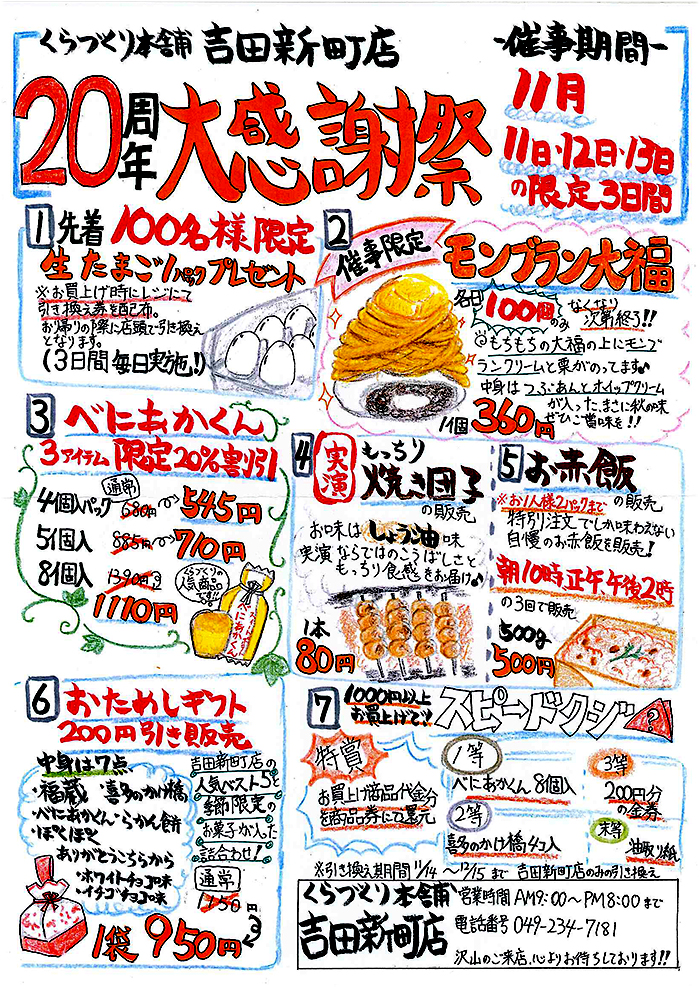 くらづくり本舗 吉田新町店
-催事期間-
20周年 大感謝祭
11月
11日・12日・13日
の限定3日間
1 先着 100名様限定
生たまご1パックプレゼント
※お買上げ時にレジにて
引き換え券を配布。
お帰りの際に店頭で引き換え
となります。
(3日間 毎日実施!!)
2 催事限定
モンブラン大福
各日100個のみ なくなり次第終了!!
もちもちの大福の上にモンブ
ランクリームと栗がのってます♪
中身はつぶあんとホイップクリーム
が入った、まさに秋の味
ぜひご賞味を!!
1個 360円
3 べにあかくん
3アイテム 限定20%割引
通常
4個入パック 680円 545円
5個入 885円 710円
8個入 1390円
1110円
くらづくりの
人気商品
です!!
べにあかくん
4 実演 もっちり
焼き団子
の販売
お味はしょう油味
実演ならではのこうばしさと
もっちり食感をお届け♪
1本
80円
5 お赤飯
※お1人様2パックまでの販売
特別注文でしか味わえない
自慢のお赤飯を販売!
朝10時 正午 午後2時
の3回で販売
500g
500円
6 おためしギフト
200円引き販売
中身は7点
・福蔵 喜多のかけ橋
・べにあかくん・らかん餅
・ほくほく
ありがとうこちらから
・ホワイトチョコ味
・イチゴチョコ味
吉田新町店の
人気ベスト5と
季節限定の
お菓子が入った
詰合わせ!
通常
1150円
1袋 950円
7 1000円以上
お買上げで!! スピードクジ ?
特賞
お買上げ商品代金分
を商品券にて還元
1等
べにあかくん 8個入
2等
喜多のかけ橋4コ入
3等
200円分
の金券
末等
油取り紙
※引き換え期間 11/14〜12/15まで 吉田新町店のみの引き換え
くらづくり本舗
吉田新町店
営業時間 AM9:00〜PM8:00まで
電話番号 049-234-7181
沢山のご来店、心よりお待ちしております!!